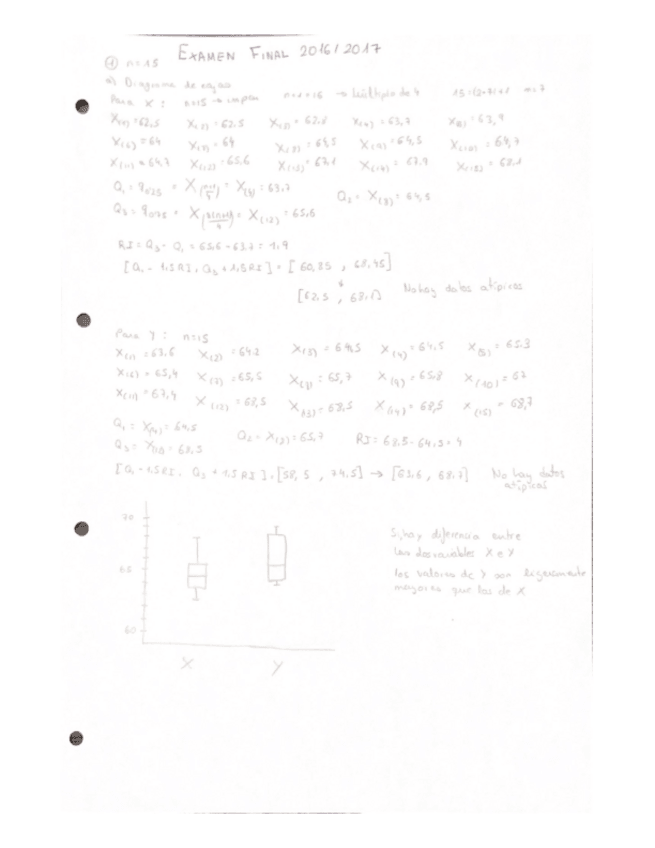 EXAMEN FINAL 2016/2017
① n=15
a) Diagrama de cajas
Para X: n=15 → impar n+1=16 → múltiplo de 4 15=(2·7)+1 m=7
X(1)=62,5 X(2)=62,5 X(3)=62,8 X(4)=63,7 X(5)=63,9
X(6)=64 X(7)=64 X(8)=64,5 X(9)=64,5 X(10)=64,7
X(11)=64,7 X(12)=65,6 X(13)=67,1 X(14)=67,9 X(15)=68,1
Q₁ = q₀,₂₅ = X((n+1)/4) = X(4) = 63,7 Q₂ = X(8) = 64,5
Q₃ = q₀,₇₅ = X(3(n+1)/4) = X(12) = 65,6
RI = Q₃ - Q₁ = 65,6 - 63,7 = 1,9
[Q₁ - 1,5RI, Q₃ + 1,5RI] = [60,85 , 68,45]
[62,5 , 68,1] No hay datos atípicos
Para Y: n=15
X(1)=63,6 X(2)=64,2 X(3)=64,5 X(4)=64,5 X(5)=65,3
X(6)=65,4 X(7)=65,5 X(8)=65,7 X(9)=65,8 X(10)=67
X(11)=67,4 X(12)=68,5 X(13)=68,5 X(14)=68,5 X(15)=68,7
Q₁ = X(4) = 64,5
Q₂ = X(8) = 65,7 RI = 68,5 - 64,5 = 4
Q₃ = X(12) = 68,5
[Q₁ - 1,5RI, Q₃ + 1,5RI] = [58,5 , 74,5] → [63,6 , 68,7] No hay datos
atípicos
70
65
60
X Y
Si hay diferencia entre
las dos variables X e Y
los valores de Y son ligeramente
mayores que los de X